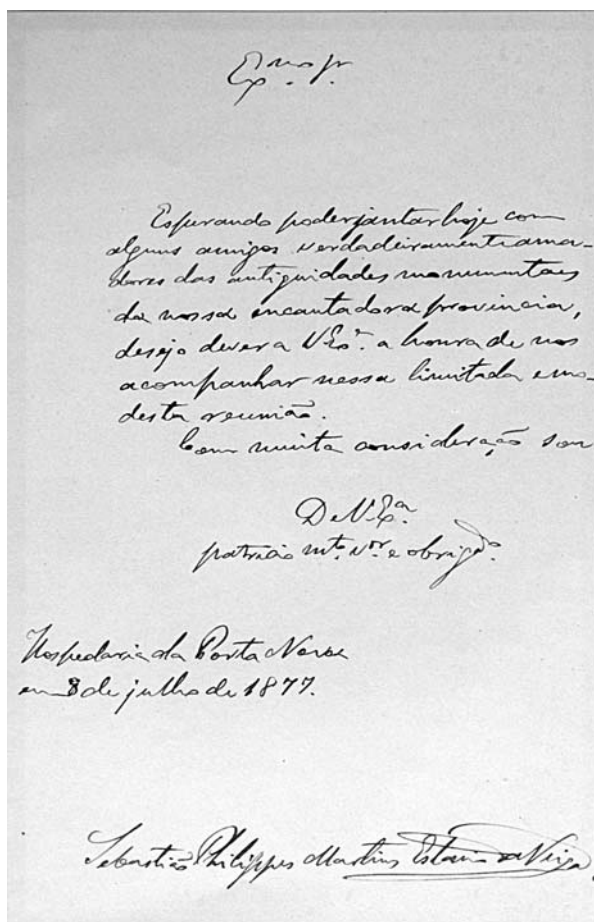 Exmo Sr.
Esperando poder jantar hoje com
alguns amigos verdadeiramente ama-
dores das antiguidades monumentaes
da nossa encantadora provincia,
desejo dever a V. Exa. a honra de nos
acompanhar nessa limitada e mo-
desta reunião.
Com muita consideração sou
De V. Exa.
patricio mto. vor. e obrigdo.
Hospedaria da Porta Nova
em 8 de julho de 1877.
Sebastião Philippes Martins Estacio da Veiga.